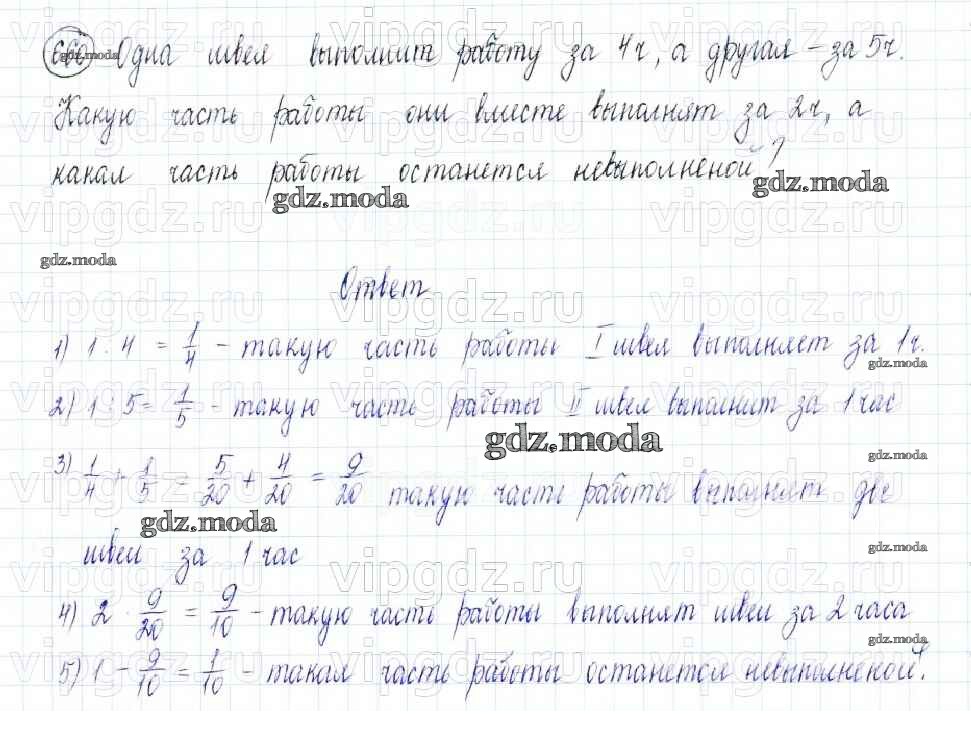 Одна швея выполнит работу за 4ч, а другая – за 5ч.
Какую часть работы они вместе выполнят за 2ч, а
какая часть работы останется невыполненой?
gdz.moda
gdz.moda
Ответ
1) 1 : 4 = 1/4 – такую часть работы I швея выполняет за 1ч.
2) 1 : 5 = 1/5 – такую часть работы II швея выполнит за 1 час
gdz.moda
3) 1/4 + 1/5 = 5/20 + 4/20 = 9/20 такую часть работы выполнят две
швеи за 1 час
gdz.moda
4) 2 · 9/20 = 9/10 – такую часть работы выполнят швеи за 2 часа
5) 1 – 9/10 = 1/10 – такая часть работы останется невыполненой.
vipgdz.ru